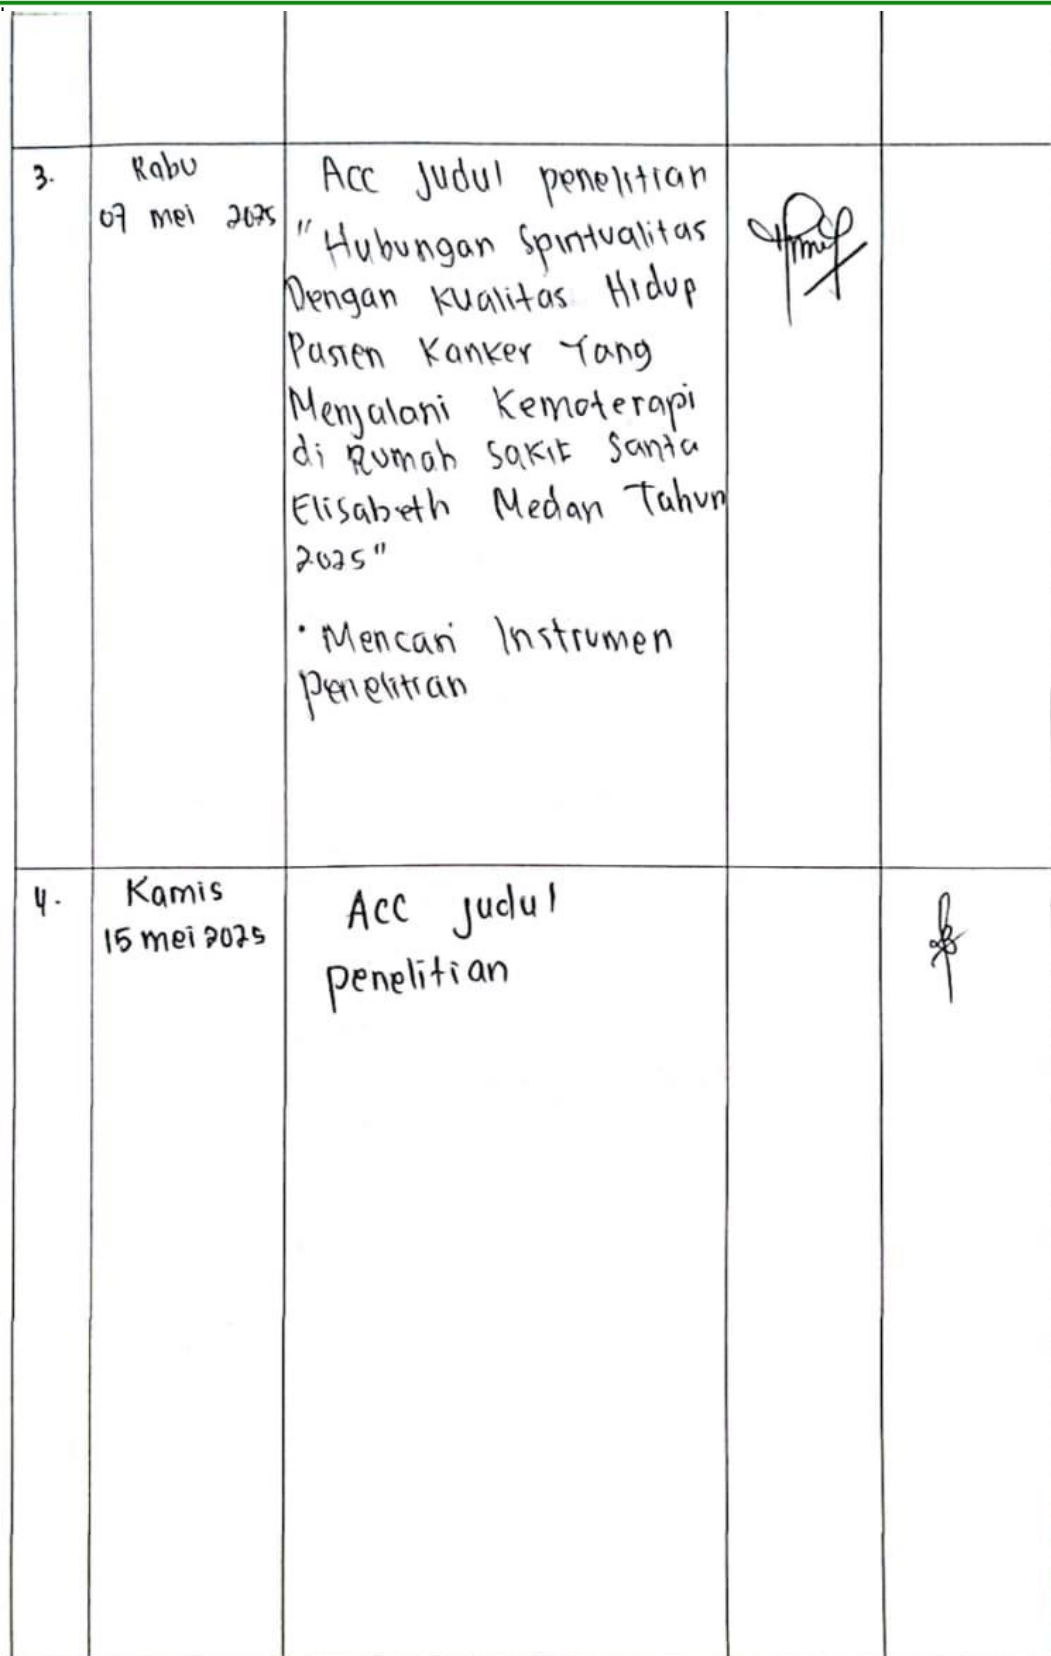 3.
Rabu
07 mei 2025
Acc Judul penelitian
"Hubungan Spiritualitas
Dengan Kualitas Hidup
Pasien Kanker Yang
Menjalani Kemoterapi
di Rumah Sakit Santa
Elisabeth Medan Tahun
2025"
• Mencari Instrumen
Penelitian
4.
Kamis
15 mei 2025
Acc Judul
penelitian